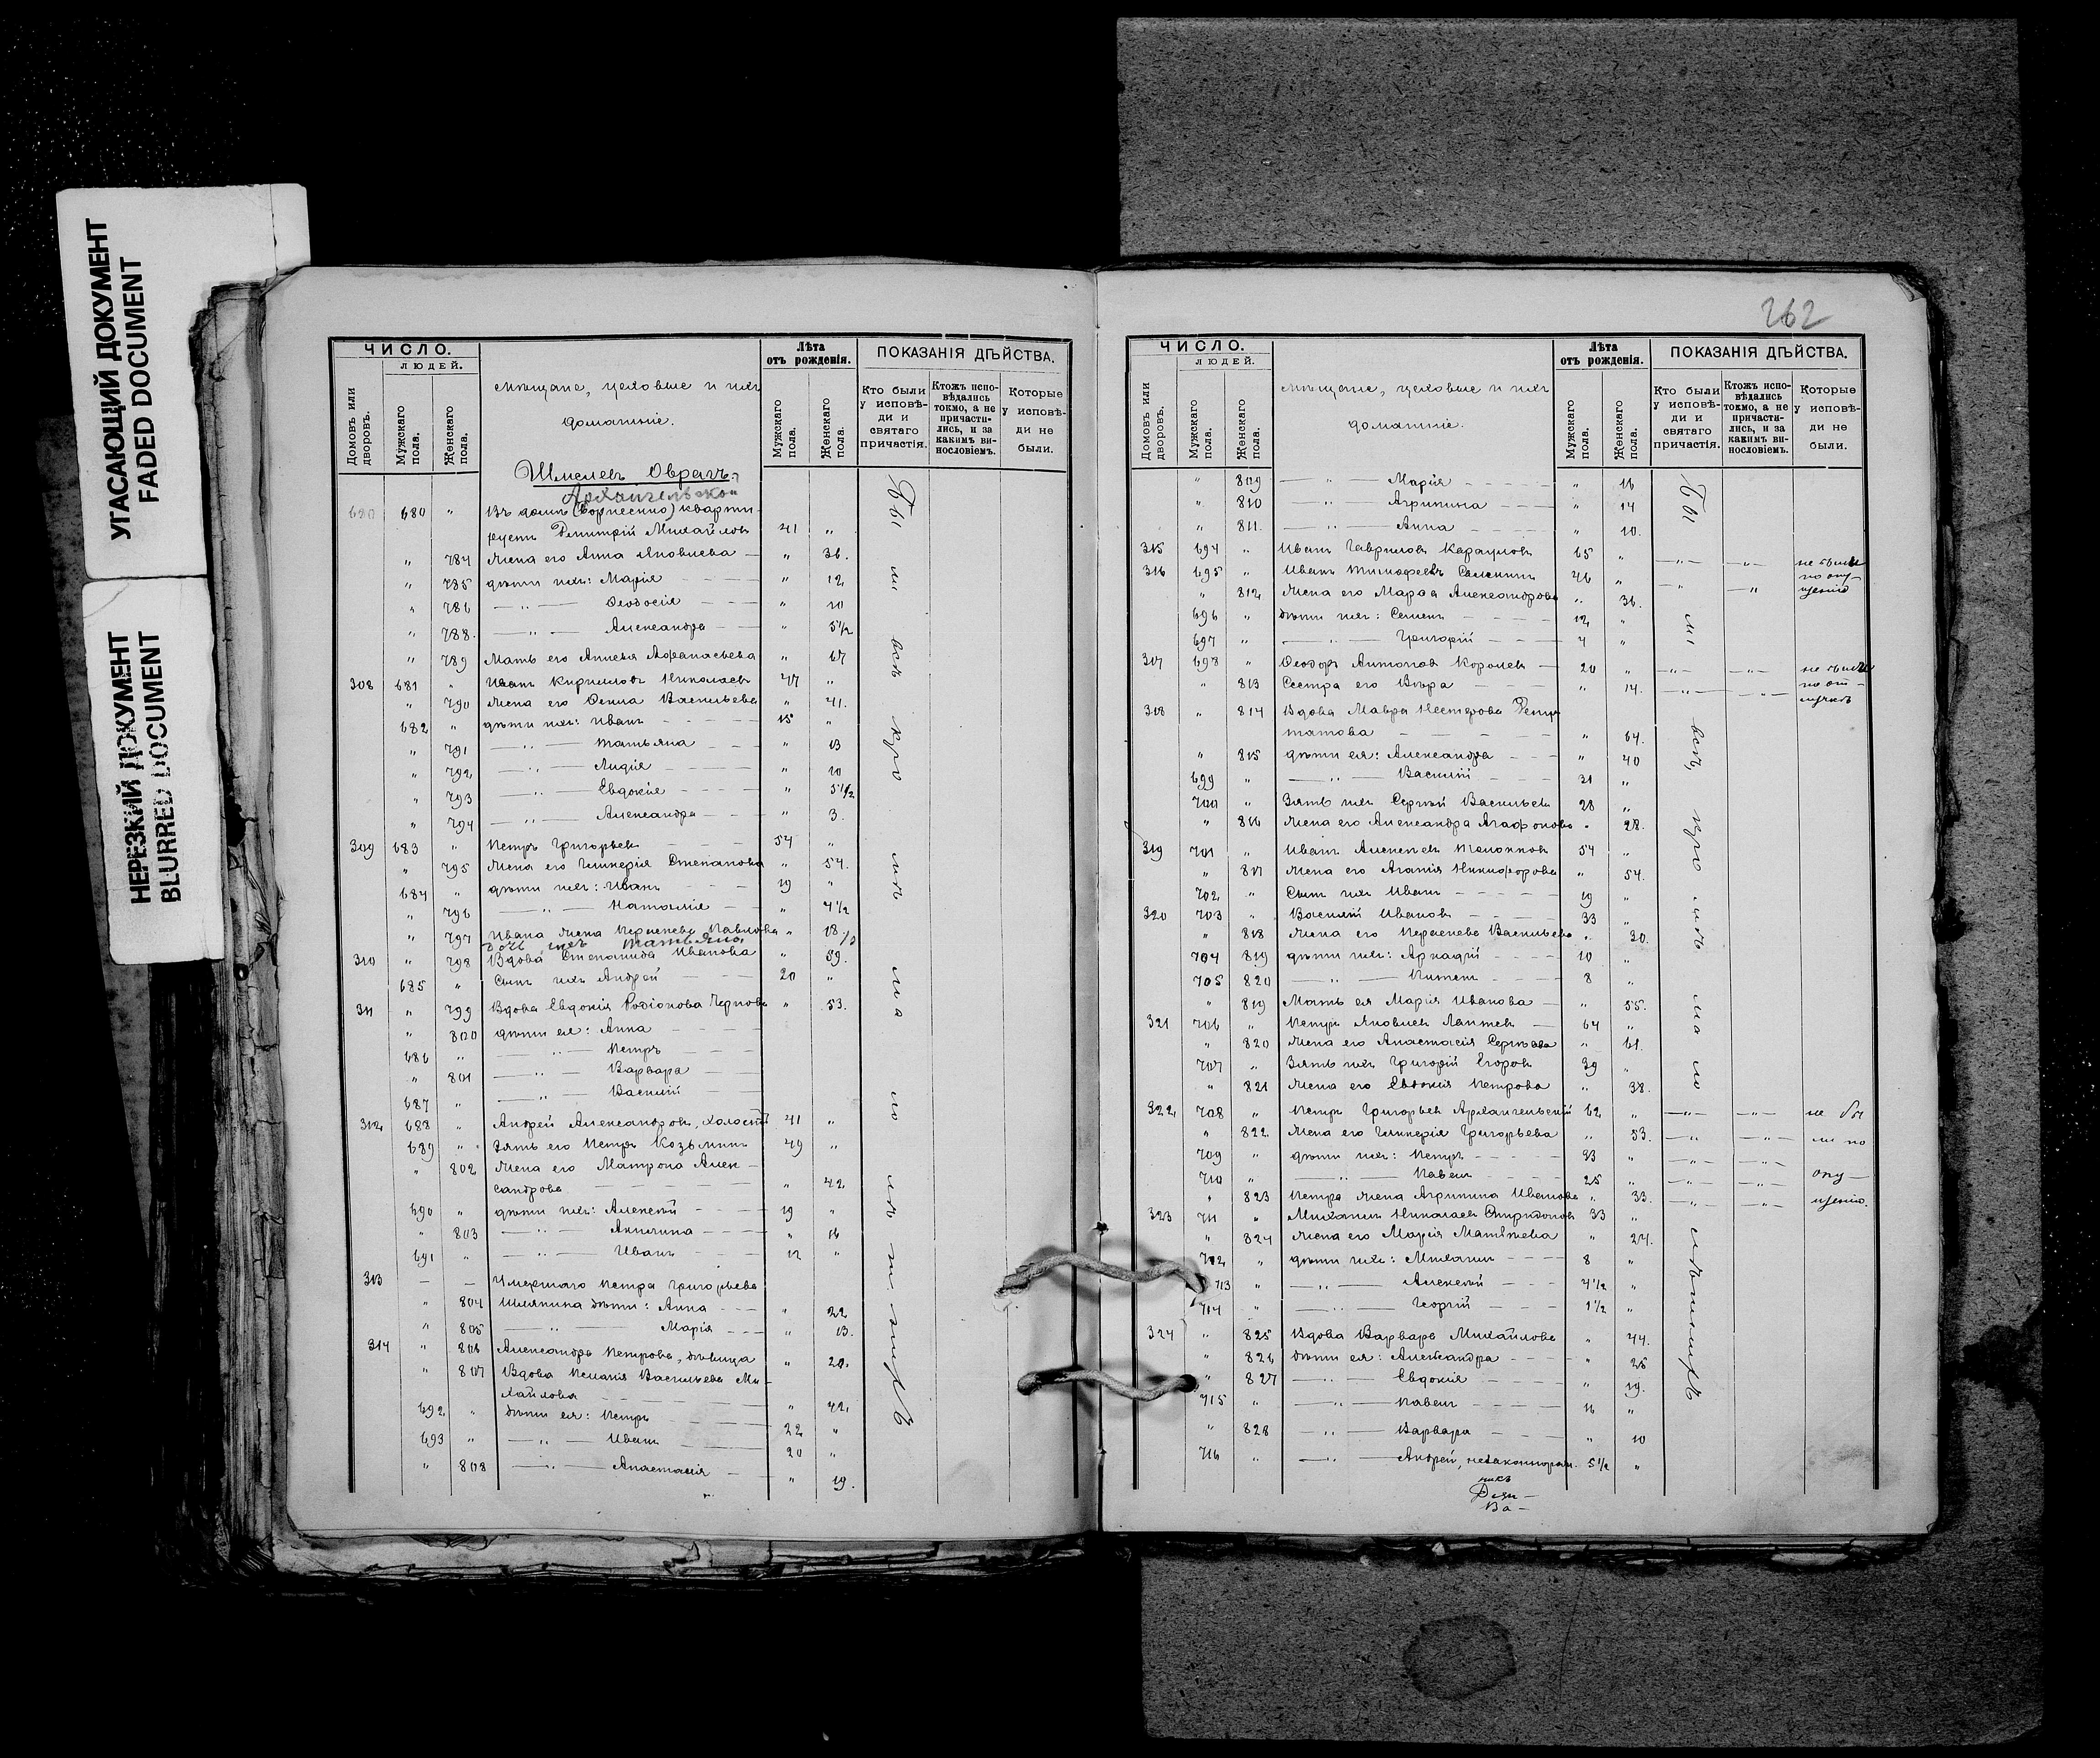 УГАСАЮЩИЙ ДОКУМЕНТ
FADED DOCUMENT
НЕРЕЗКИЙ ДОКУМЕНТ
BLURRED DOCUMENT
ЧИСЛО.
ЛЮДЕЙ.
Домовъ или дворовъ.
Мужскаго пола.
Женскаго пола.
мѣщане, цеховые и ихъ
домашніе.
Лѣта
отъ рожденія.
Мужскаго пола.
Женскаго пола.
ПОКАЗАНІЯ ДѢЙСТВА.
Кто были у исповѣ-ди и святаго причастія.
Ктожъ испо-вѣдались токмо, а не причасти-лись, и за какимъ ви-нословіемъ.
Которые у исповѣ-ди не были.
Шмелевъ Оврагъ
680 " Въ домѣ кварти-
руетъ Димитрій Михайловъ 41 "
" 784 Жена его Анна Яковлева " 36.
" 785 дѣти ихъ: Марія " 12
" 786 Ѳеодосія " 10
" 788. Александра " 5 1/2
" 789 Мать его Аннета Афанасьева " 67
308 681 " Иванъ Кирилловъ Николаевъ 47 "
" 790 Жена его Ѳекла Васильева " 41.
682 " дѣти ихъ: Иванъ 15 "
" 791 Татьяна " 13
" 792 Лидія " 10
" 793 Евдокія " 5 1/2
" 794 Александра " 3.
309 683 " Петръ Григорьевъ 54 "
" 795 Жена его Гликерія Степанова " 54.
684 " дѣти ихъ: Иванъ 19 "
" 796 Наталія " 4 1/2
" 797 Ивана жена Параскева Павлова " 18.
дочь ихъ Татьяна
310 " 798 Вдова Степанида Иванова " 59.
685 " Сынъ ихъ Андрей 20 "
311 " 799 Вдова Евдокія Родіонова Чернова " 53.
" 800 дѣти ея: Анна
686 " Петръ
" 801 Варвара
687 " Василій
312 688 " Андрей Александровъ, холостъ 41 "
689 " Зять его Петръ Козьминъ 49 "
" 802 Жена его Матрона Алек-
сандрова " 42
690 " дѣти ихъ: Алексѣй 19 "
" 803 Акилина " 16
691 " Иванъ 12 "
313 – – Умершаго Петра Григорьева
" 804 Шляпина дѣти: Анна " 22
" 805 Марія " 13.
314 " 806 Александра Петрова, дѣвица " 20.
" 807 Вдова Пелагія Васильева Ми-
хайлова " 42.
692 " дѣти ея: Петръ 22 "
693 " Иванъ 20 "
" 808 Анастасія " 19.
262
ЧИСЛО.
ЛЮДЕЙ.
Домовъ или дворовъ.
Мужскаго пола.
Женскаго пола.
мѣщане, цеховые и ихъ
домашніе.
Лѣта
отъ рожденія.
Мужскаго пола.
Женскаго пола.
ПОКАЗАНІЯ ДѢЙСТВА.
Кто были у исповѣ-ди и святаго причастія.
Ктожъ испо-вѣдались токмо, а не причасти-лись, и за какимъ ви-нословіемъ.
Которые у исповѣ-ди не были.
" 809 Марія " 16
" 810 Агрипина " 14
" 811. Анна " 10.
315 694 " Иванъ Гавриловъ Карауловъ 65 " не были
316 695 " Иванъ Тимофеевъ 46 " по опу-
" 812 Жена его Марѳа Александрова " 36. щенію
696 " дѣти ихъ: Семенъ 12 "
697 " Григорій 4 "
317 698 " Ѳеодоръ Антоновъ Королевъ 20 " не были
" 813 Сестра его Вѣра " 14. по от-
лучкѣ
318 " 814 Вдова Мавра Нестерова
" 64.
" 815 дѣти ея: Александра " 40
699 " Василій 31 "
700 " Зять ихъ Сергѣй Васильевъ 28 "
" 816 Жена его Александра Агафонова " 28.
319 701 " Иванъ Алексѣевъ 54 "
" 817 Жена его Агапія Никифорова " 54.
702 " Сынъ ихъ Иванъ 19 "
320 703 " Василій Ивановъ 33 "
" 818 Жена его Параскева Васильева " 30.
704 819 дѣти ихъ: Аркадій 10 "
705 820 8 "
" 819 Мать ея Марія Иванова " 55.
321 706 " Петръ Яковлевъ Лаптевъ 64 "
" 820 Жена его Анастасія Сергѣева " 61.
707 " Зять ихъ Григорій Егоровъ 39 "
" 821 Жена его Евдокія Петрова " 38.
322 708 " Петръ Григорьевъ Архангельскій 62 " не бы
" 822 Жена его Гликерія Григорьева " 53. ли по
709 " дѣти ихъ: Петръ 33 "
710 " Павелъ 25 " опу-
" 823 Петра жена Агрипина Иванова " 33. щенію.
323 711 " Михаилъ Николаевъ Спиридоновъ 33 "
" 824 Жена его Марія Матвѣева " 27.
712 " дѣти ихъ: Михаилъ 8 "
713 " Алексѣй 4 1/2 "
714 " Георгій 1 1/2 "
324 " 825 Вдова Варвара Михайлова " 44.
" 826 дѣти ея: Александра " 25
" 827 Евдокія " 19.
715 " Павелъ 16 "
" 828 Варвара " 10
716 " Андрей, незаконорож. 5 1/2 "